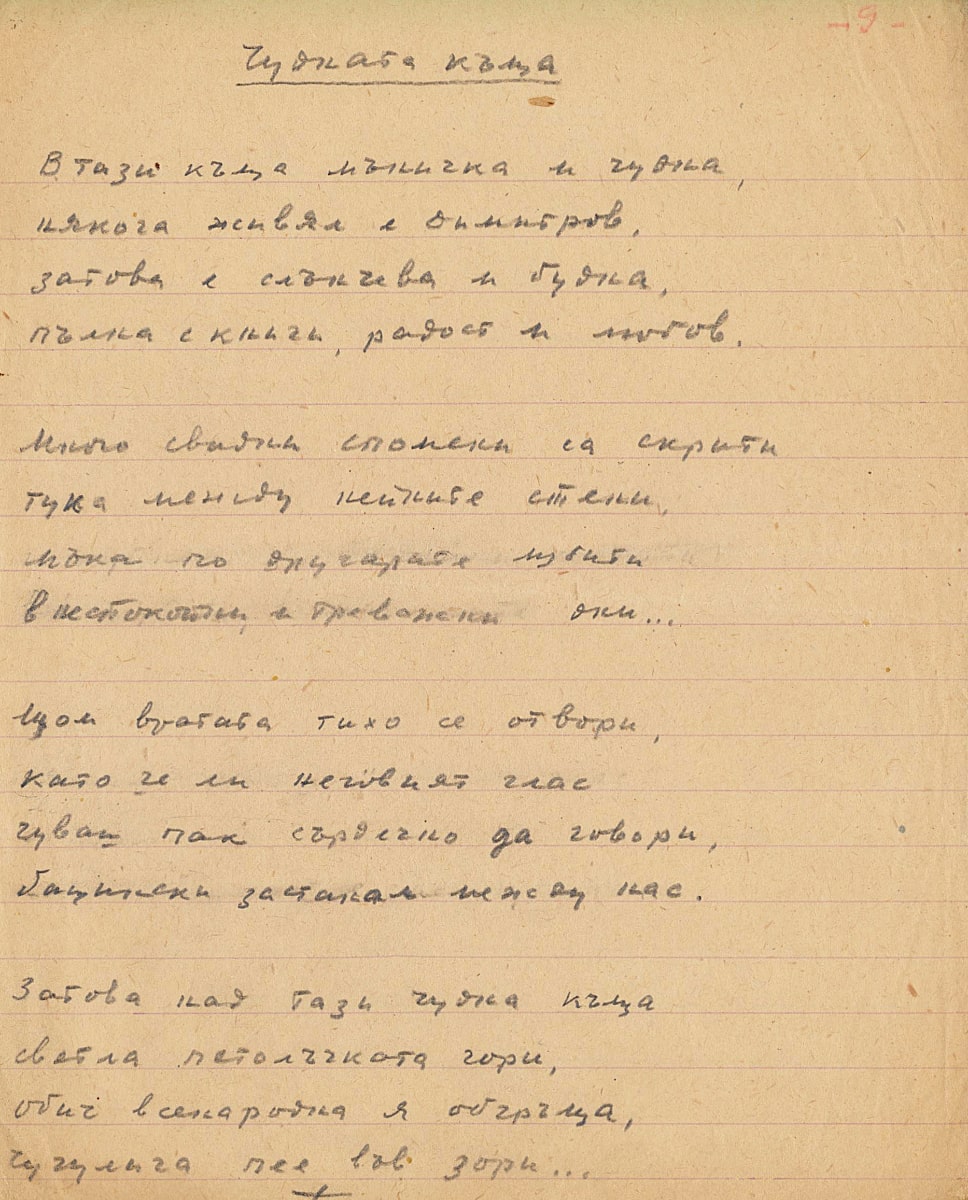 - 9 -
Чудната къща
В тази къща мъничка и чудна,
някога живял е Димитров,
затова е слънчева и будна,
пълна с книги, радост и любов.
Много свидни спомени са скрити
тука между нейните стени,
мъка по другарите избити
в неспокойни и тревожни дни...
Щом вратата тихо се отвори,
като че ли неговият глас
чуваш пак сърдечно да говори,
бащински застанал между нас.
Затова над тази чудна къща
светла петолъчката гори,
обич всенародна я обгръща,
чучулига пее във зори...